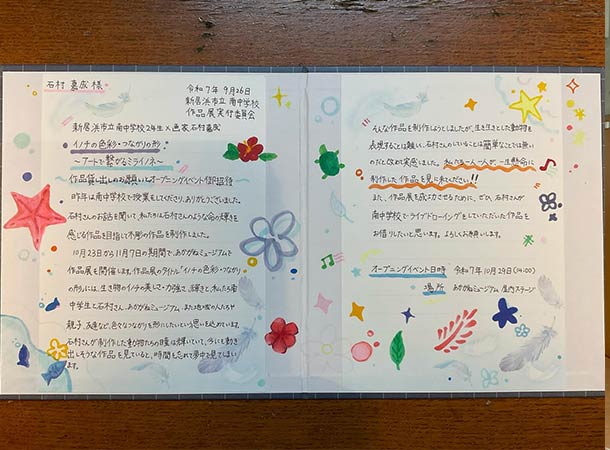 石村 嘉成 様
令和7年 9月26日
新居浜市立 南中学校
作品展実行委員会
新居浜市立南中学校2年生×画家 石村嘉成
イノチの色彩・つながりの形
～アートで繋がるミライノネ～
作品貸し出しのお願いとオープニングイベント御招待
昨年は南中学校で授業をしてくださり、ありがとうございました。
石村さんのお話を聞いて、私たちは石村さんのような命の輝きを
感じる作品を目指して木彫の作品を制作しました。
10月23日から11月7日の期間で、あかがねミュージアムで
作品展を開催します。作品展のタイトル「イノチの色彩・つながり
の形」には、生き物のイノチの美しさ・力強さ、儚さと私たち南
中学生と石村さん、あかがねミュージアム、また地域の人たちや
親子、友達など、色々なつながりを形にしたいという思いを込めています。
石村さんが制作した動物たちの瞳は輝いていて、今にも動き
出しそうな作品を見ていると、時間も忘れて夢中で見てしまい
ます。
そんな作品を制作しようとしましたが、生き生きとした動物を
表現することは難しく、石村さんのしていることは簡単なことでは無い
のだと改めて実感しました。私たち一人一人が、一生懸命に
制作した作品を見に来てください!!
また、作品展を成功させるために、ぜひ、石村さんが
南中学校でライブドローイングをしていただいた作品を
お借りしたいと思います。よろしくお願いします。
オープニングイベント日時 令和7年 10月29日(14:00)
場所 あかがねミュージアム 屋内ステージ